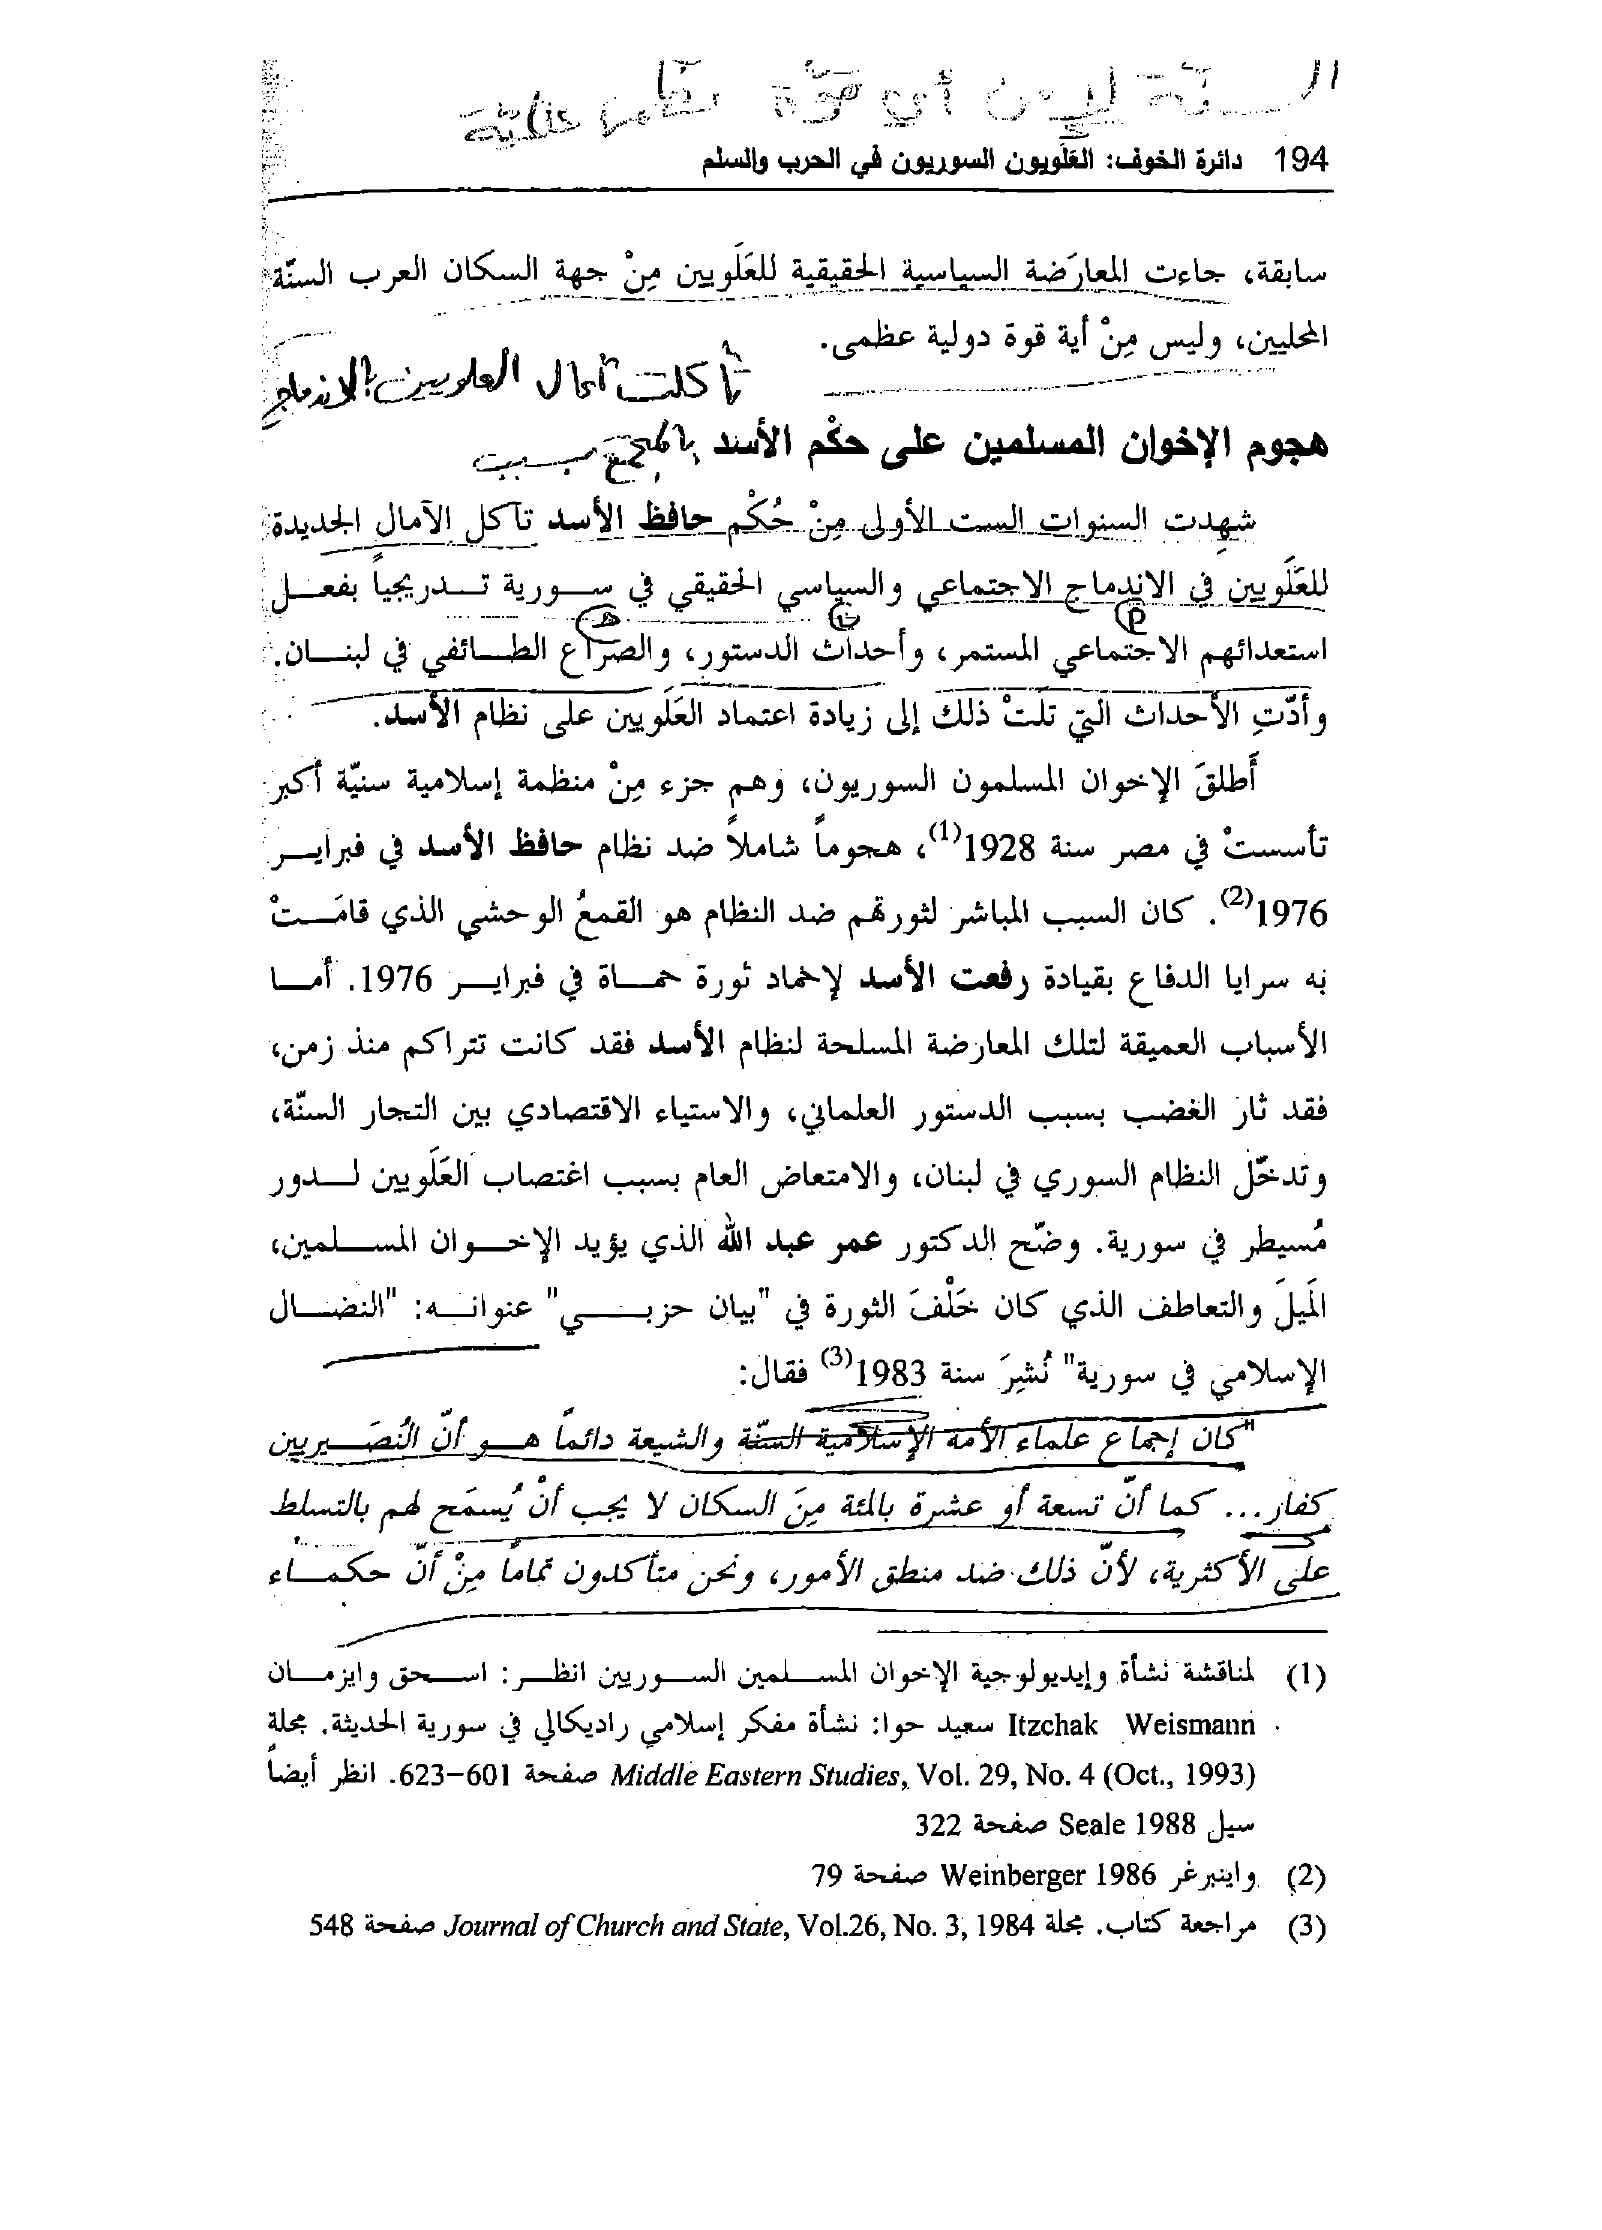 194 دائرة الخوف: العَلَويون السوريون في الحرب والسلم
سابقة، جاءت المعارَضة السياسية الحقيقية للعَلَويين مِنْ جهة السكان العرب السنّة
المحليين، وليس مِنْ أية قوة دولية عظمى.
تأكلت آمال العلويين بالاندماج
هجوم الإخوان المسلمين على حكْم الأسد
بسبب
شهِدت السنوات الست الأولى مِنْ حُكْم حافظ الأسد تآكل الآمال الجديدة
للعَلَويين في الاندماج الاجتماعي والسياسي الحقيقي في سورية تدريجياً بفعل
استعدائهم الاجتماعي المستمر، وأحداث الدستور، والصراع الطائفي في لبنان.
وأدّتِ الأحداث التي تلتْ ذلك إلى زيادة اعتماد العَلَويين على نظام الأسد.
أَطلقَ الإخوان المسلمون السوريون، وهم جزء مِنْ منظمة إسلامية سنيّة أكبر
تأسستْ في مصر سنة 1928(1)، هجوماً شاملاً ضد نظام حافظ الأسد في فبراير
1976(2). كان السبب المباشر لثورتهم ضد النظام هو القمعُ الوحشي الذي قامَتْ
به سرايا الدفاع بقيادة رفعت الأسد لإخماد ثورة حماة في فبراير 1976. أما
الأسباب العميقة لتلك المعارضة المسلحة لنظام الأسد فقد كانت تتراكم منذ زمن،
فقد ثار الغضب بسبب الدستور العلماني، والاستياء الاقتصادي بين التجار السنّة،
وتدخّل النظام السوري في لبنان، والامتعاض العام بسبب اغتصاب العَلَويين لدور
مُسيطر في سورية. وضّح الدكتور عمر عبد الله الذي يؤيد الإخوان المسلمين،
المَيلَ والتعاطف الذي كان خَلْفَ الثورة في "بيان حزبي" عنوانه: "النضال
الإسلامي في سورية" نُشِرَ سنة 1983(3) فقال:
"كان إجماع علماء الأمة الإسلامية السنّة والشيعة دائماً هو أنّ النُصَيريين
كفار... كما أنّ تسعة أو عشرة بالمئة مِنَ السكان لا يجب أنْ يُسمَح لهم بالتسلط
على الأكثرية، لأنّ ذلك ضد منطق الأمور، ونحن متأكدون تماماً مِنْ أنّ حكماء
(1) لمناقشة نشأة وإيديولوجية الإخوان المسلمين السوريين انظر: اسحق وايزمان
Itzchak Weismann سعيد حوا: نشأة مفكر إسلامي راديكالي في سورية الحديثة. مجلة
Middle Eastern Studies, Vol. 29, No. 4 (Oct., 1993) صفحة 601–623. انظر أيضاً
سيل Seale 1988 صفحة 322
(2) واينبرغر Weinberger 1986 صفحة 79
(3) مراجعة كتاب. مجلة Journal of Church and State, Vol.26, No. 3, 1984 صفحة 548